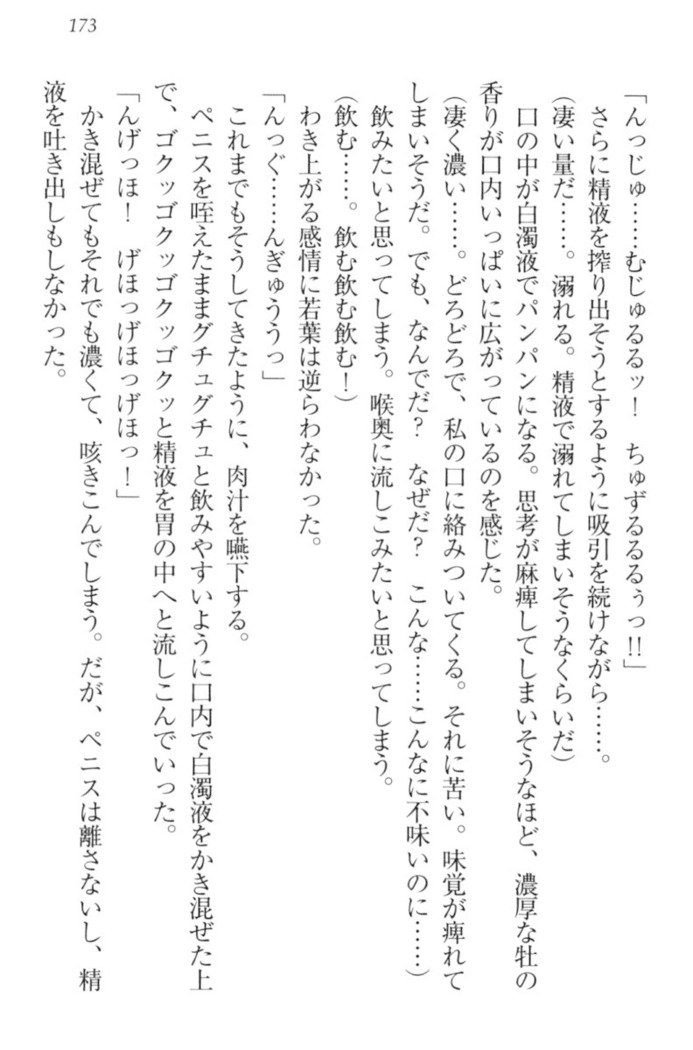 173
「んっじゅ……むじゅるるッ！　ちゅずるるるぅっ!!」
　さらに精液を搾り出そうとするように吸引を続けながら……。
（凄い量だ……。溺れる。精液で溺れてしまいそうなくらいだ）
　口の中が白濁液でパンパンになる。思考が麻痺してしまいそうなほど、濃厚な牡の
香りが口内いっぱいに広がっているのを感じた。
（凄く濃い……。どろどろで、私の口に絡みついてくる。それに苦い。味覚が痺れて
しまいそうだ。でも、なんでだ？　なぜだ？　こんな……こんなに不味いのに……）
　飲みたいと思ってしまう。喉奥に流しこみたいと思ってしまう。
（飲む……。飲む飲む飲む！）
　わき上がる感情に若葉は逆らわなかった。
「んっぐ……んぎゅううっ」
　これまでもそうしてきたように、肉汁を嚥下する。
　ペニスを咥えたままグチュグチュと飲みやすいように口内で白濁液をかき混ぜた上
で、ゴクッゴクッゴクッゴクッと精液を胃の中へと流しこんでいった。
「んげっほ！　げほっげほっげほっ！」
　かき混ぜてもそれでも濃くて、咳きこんでしまう。だが、ペニスは離さないし、精
液を吐き出しもしなかった。